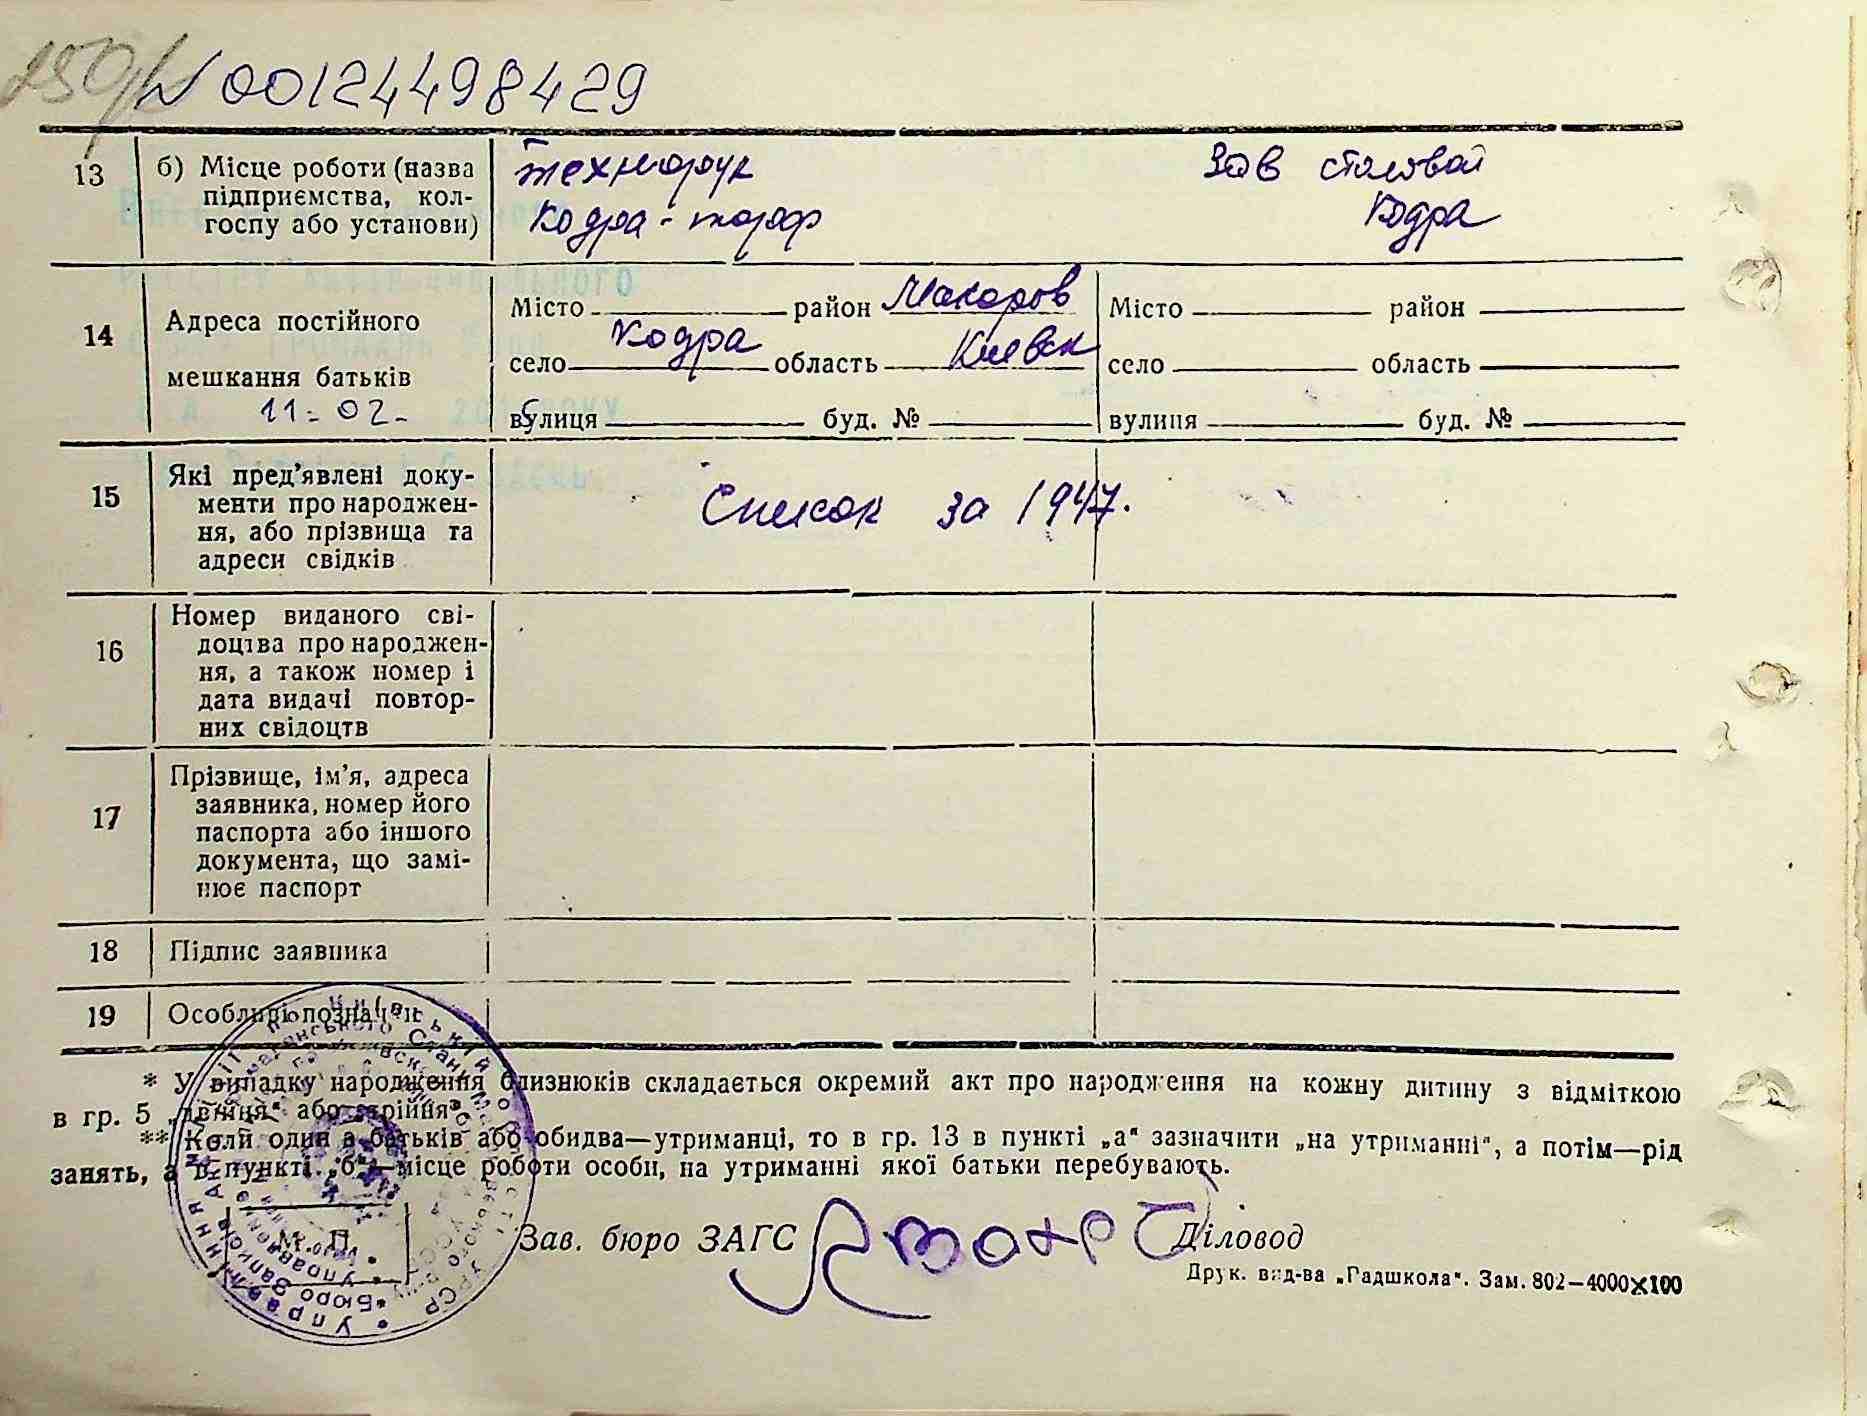 N 00124498429
13 б) Місце роботи (назва
підприємства, кол-
госпу або установи)
технорук
Кодра-торф
Зав столовой
Кодра
14 Адреса постійного
мешкання батьків
11-02-
Місто район Макаров
село Кодра область Киевск
вулиця буд. №
Місто район
село область
вулиця буд. №
15 Які пред’явлені доку-
менти про народжен-
ня, або прізвища та
адреси свідків
Список за 1947.
16 Номер виданого сві-
доцтва про народжен-
ня, а також номер і
дата видачі повтор-
них свідоцтв
17 Прізвище, ім’я, адреса
заявника, номер його
паспорта або іншого
документа, що замі-
нює паспорт
18 Підпис заявника
19 Особливі позначки
* У випадку народження близнюків складається окремий акт про народження на кожну дитину з відміткою
в гр. 5 „двійня“ або „трійня“.
** Коли один з батьків або обидва—утриманці, то в гр. 13 в пункті „а“ зазначити „на утриманні“, а потім—рід
занять, а в пункті „б“—місце роботи особи, на утриманні якої батьки перебувають.
М. П.
Зав. бюро ЗАГС
Діловод
Друк. вид-ва „Радшкола“. Зам. 802—4000×100